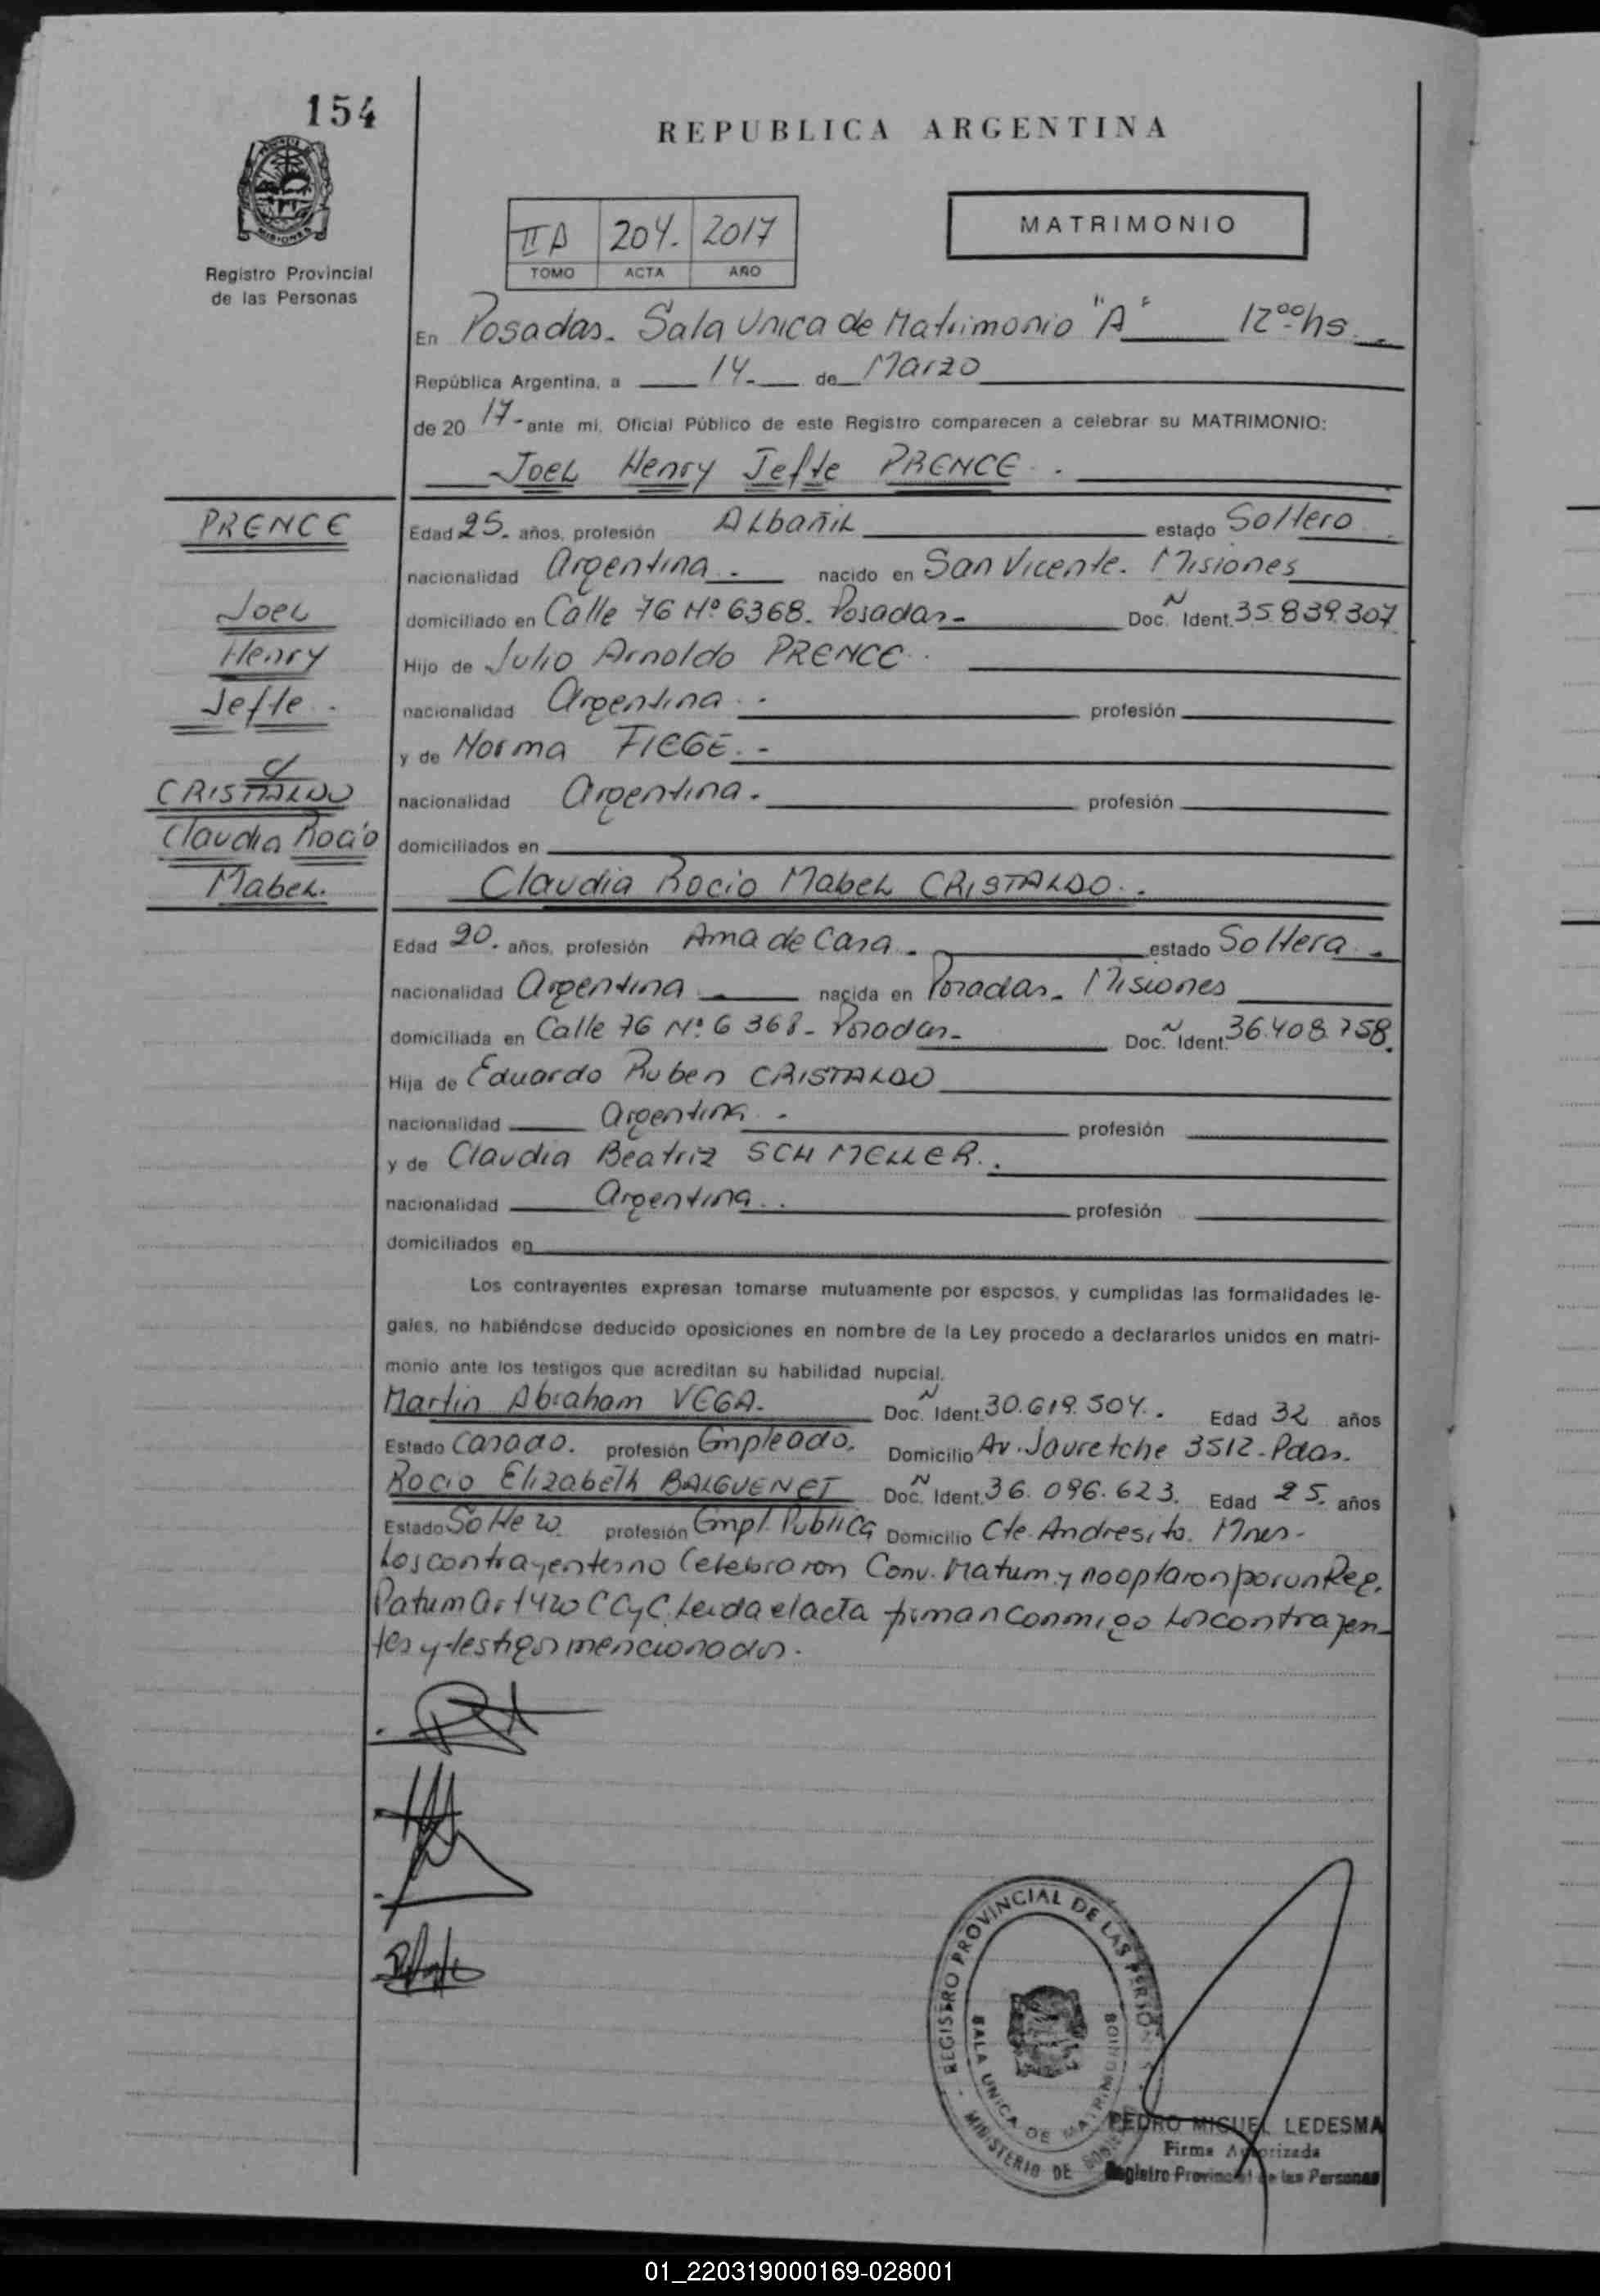 154
REPUBLICA ARGENTINA
MATRIMONIO
IIA 204. 2017
TOMO ACTA AÑO
Registro Provincial
de las Personas
En Posadas. Sala Unica de Matrimonio "A" 12ºº hs.
República Argentina, a 14. de Marzo
de 20 17- ante mi, Oficial Público de este Registro comparecen a celebrar su MATRIMONIO:
Joel Henry Jefte PRENCE.
PRENCE
Joel
Henry
Jefte.
c/
CRISTALDO
Claudia Rocío
Mabel.
Edad 25. años, profesión Albañil estado Soltero
nacionalidad Argentina. nacido en San Vicente. Misiones
domiciliado en Calle 76 Nº 6368. Posadas- Doc. N Ident. 35.839.307
Hijo de Julio Arnoldo PRENCE.
nacionalidad Argentina. profesión
y de Norma FIEGE.-
nacionalidad Argentina. profesión
domiciliados en
Claudia Rocio Mabel CRISTALDO..
Edad 20. años, profesión Ama de Casa. estado Soltera.
nacionalidad Argentina nacida en Posadas. Misiones
domiciliada en Calle 76 Nº 6368- Posadas- Doc. N Ident. 36.408.758.
Hija de Eduardo Ruben CRISTALDO
nacionalidad Argentina. profesión
y de Claudia Beatriz SCHMELLER..
nacionalidad Argentina.. profesión
domiciliados en
Los contrayentes expresan tomarse mutuamente por esposos, y cumplidas las formalidades le-
gales, no habiéndose deducido oposiciones en nombre de la Ley procedo a declararlos unidos en matri-
monio ante los testigos que acreditan su habilidad nupcial.
Martin Abraham VEGA. Doc. N Ident. 30.619.504. Edad 32 años
Estado Casado. profesión Empleado. Domicilio Av. Jauretche 3512- Pdas.
Rocio Elizabeth BALGUENET Doc. N Ident. 36.096.623. Edad 25. años
Estado Soltero. profesión Empl. Publica Domicilio Cte. Andresito. Mnes-
Los contrayentes no Celebraron Conv. Matum. y no optaron por un Reg.
Patum Art 420 CCyC. Leida el acta firman conmigo los contrayen-
tes y testigos mencionados.
REGISTRO PROVINCIAL DE LAS PERSO
SALA UNICA DE MATRIMONIOS
MINISTERIO DE
PEDRO MIGUEL LEDESMA
Firma Autorizada
Registro Provincial de las Personas
01_220319000169-028001